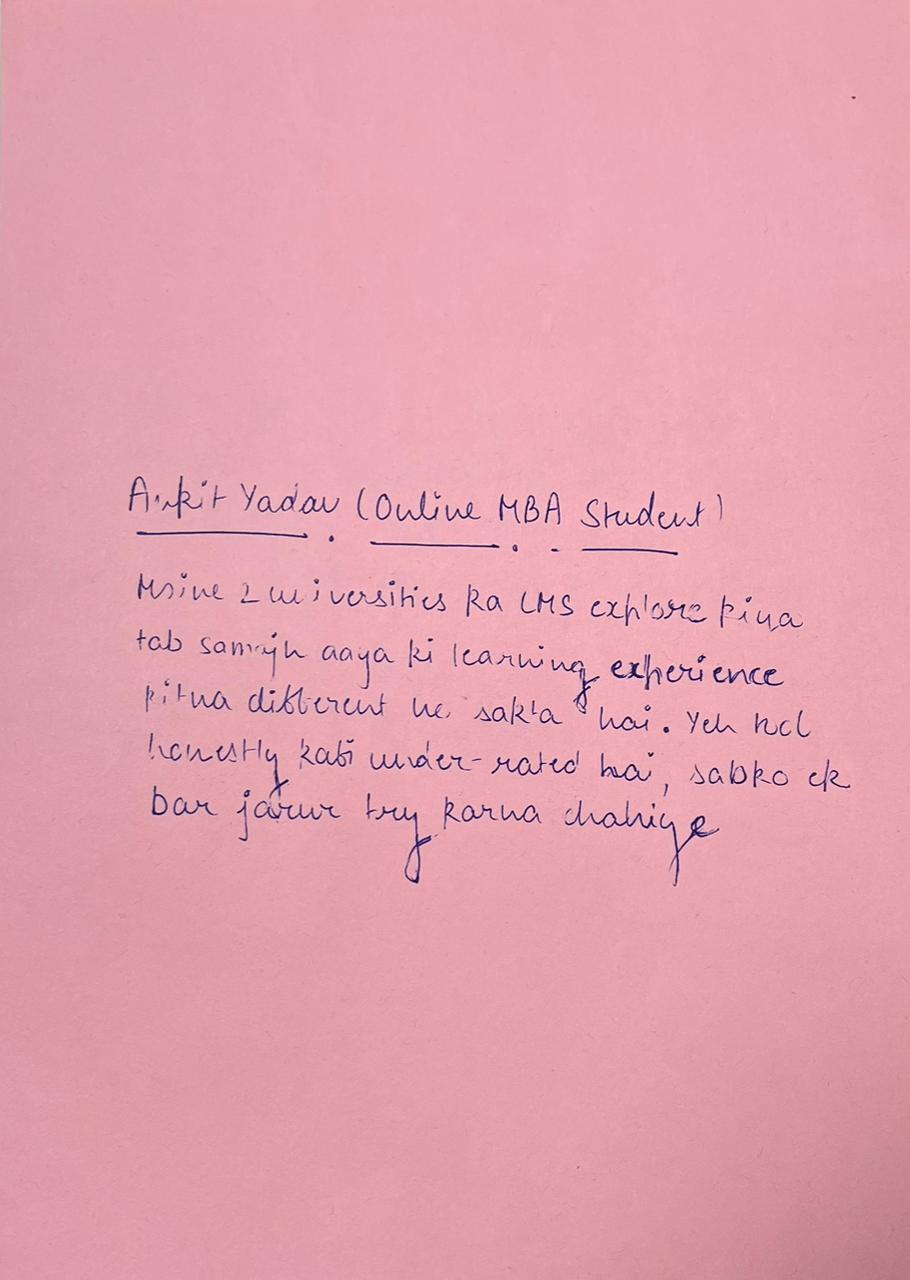 Ankit Yadav (Online MBA Student)
Maine 2 universities ka LMS explore kiya
tab samajh aaya ki learning experience
kitna different ho sakta hai. Yeh tool
honestly kafi under-rated hai, sabko ek
bar jarur try karna chahiye